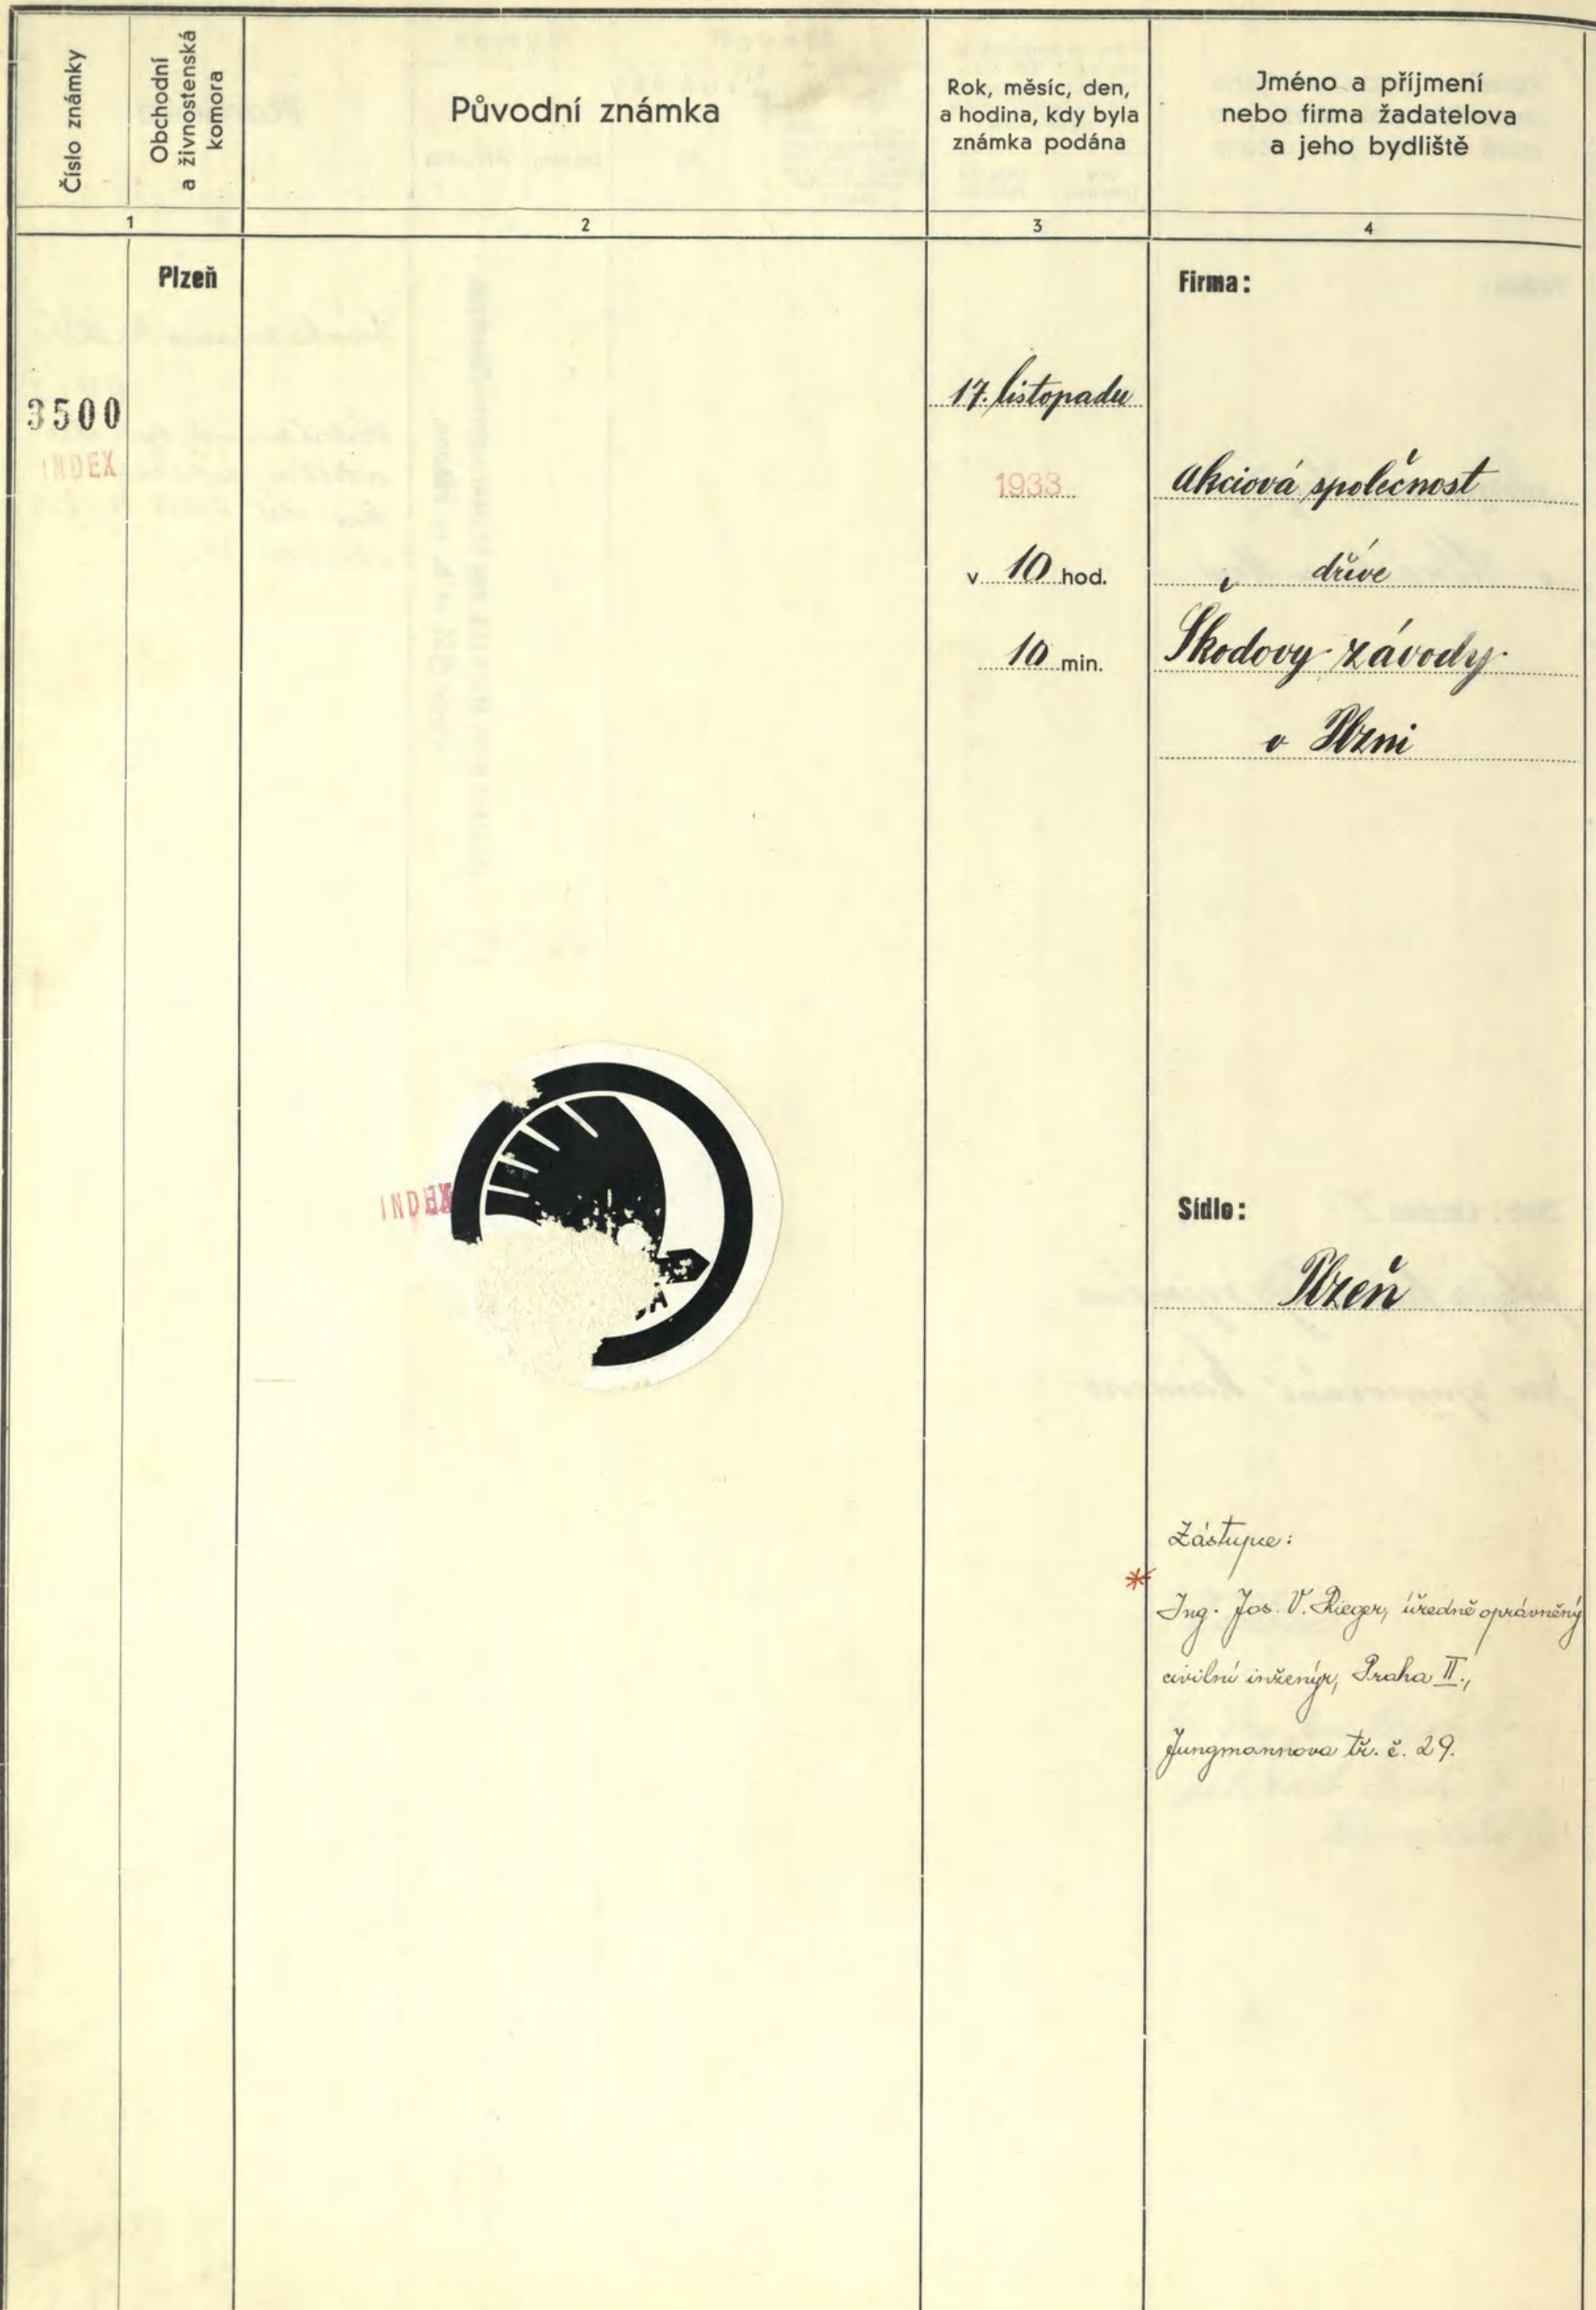 Číslo známky
Obchodní
a živnostenská
komora
Původní známka
Rok, měsíc, den,
a hodina, kdy byla
známka podána
Jméno a příjmení
nebo firma žadatelova
a jeho bydliště
1
2
3
4
Plzeň
3500
INDEX
17. listopadu
1933
v 10 hod.
10 min.
Firma:
Akciová společnost
dříve
Škodovy závody
v Plzni
INDEX
Sídlo:
Plzeň
Zástupce:
*
Ing. Jos. V. Rieger, úředně oprávněný
civilní inženýr, Praha II.,
Jungmannova tř. č. 29.